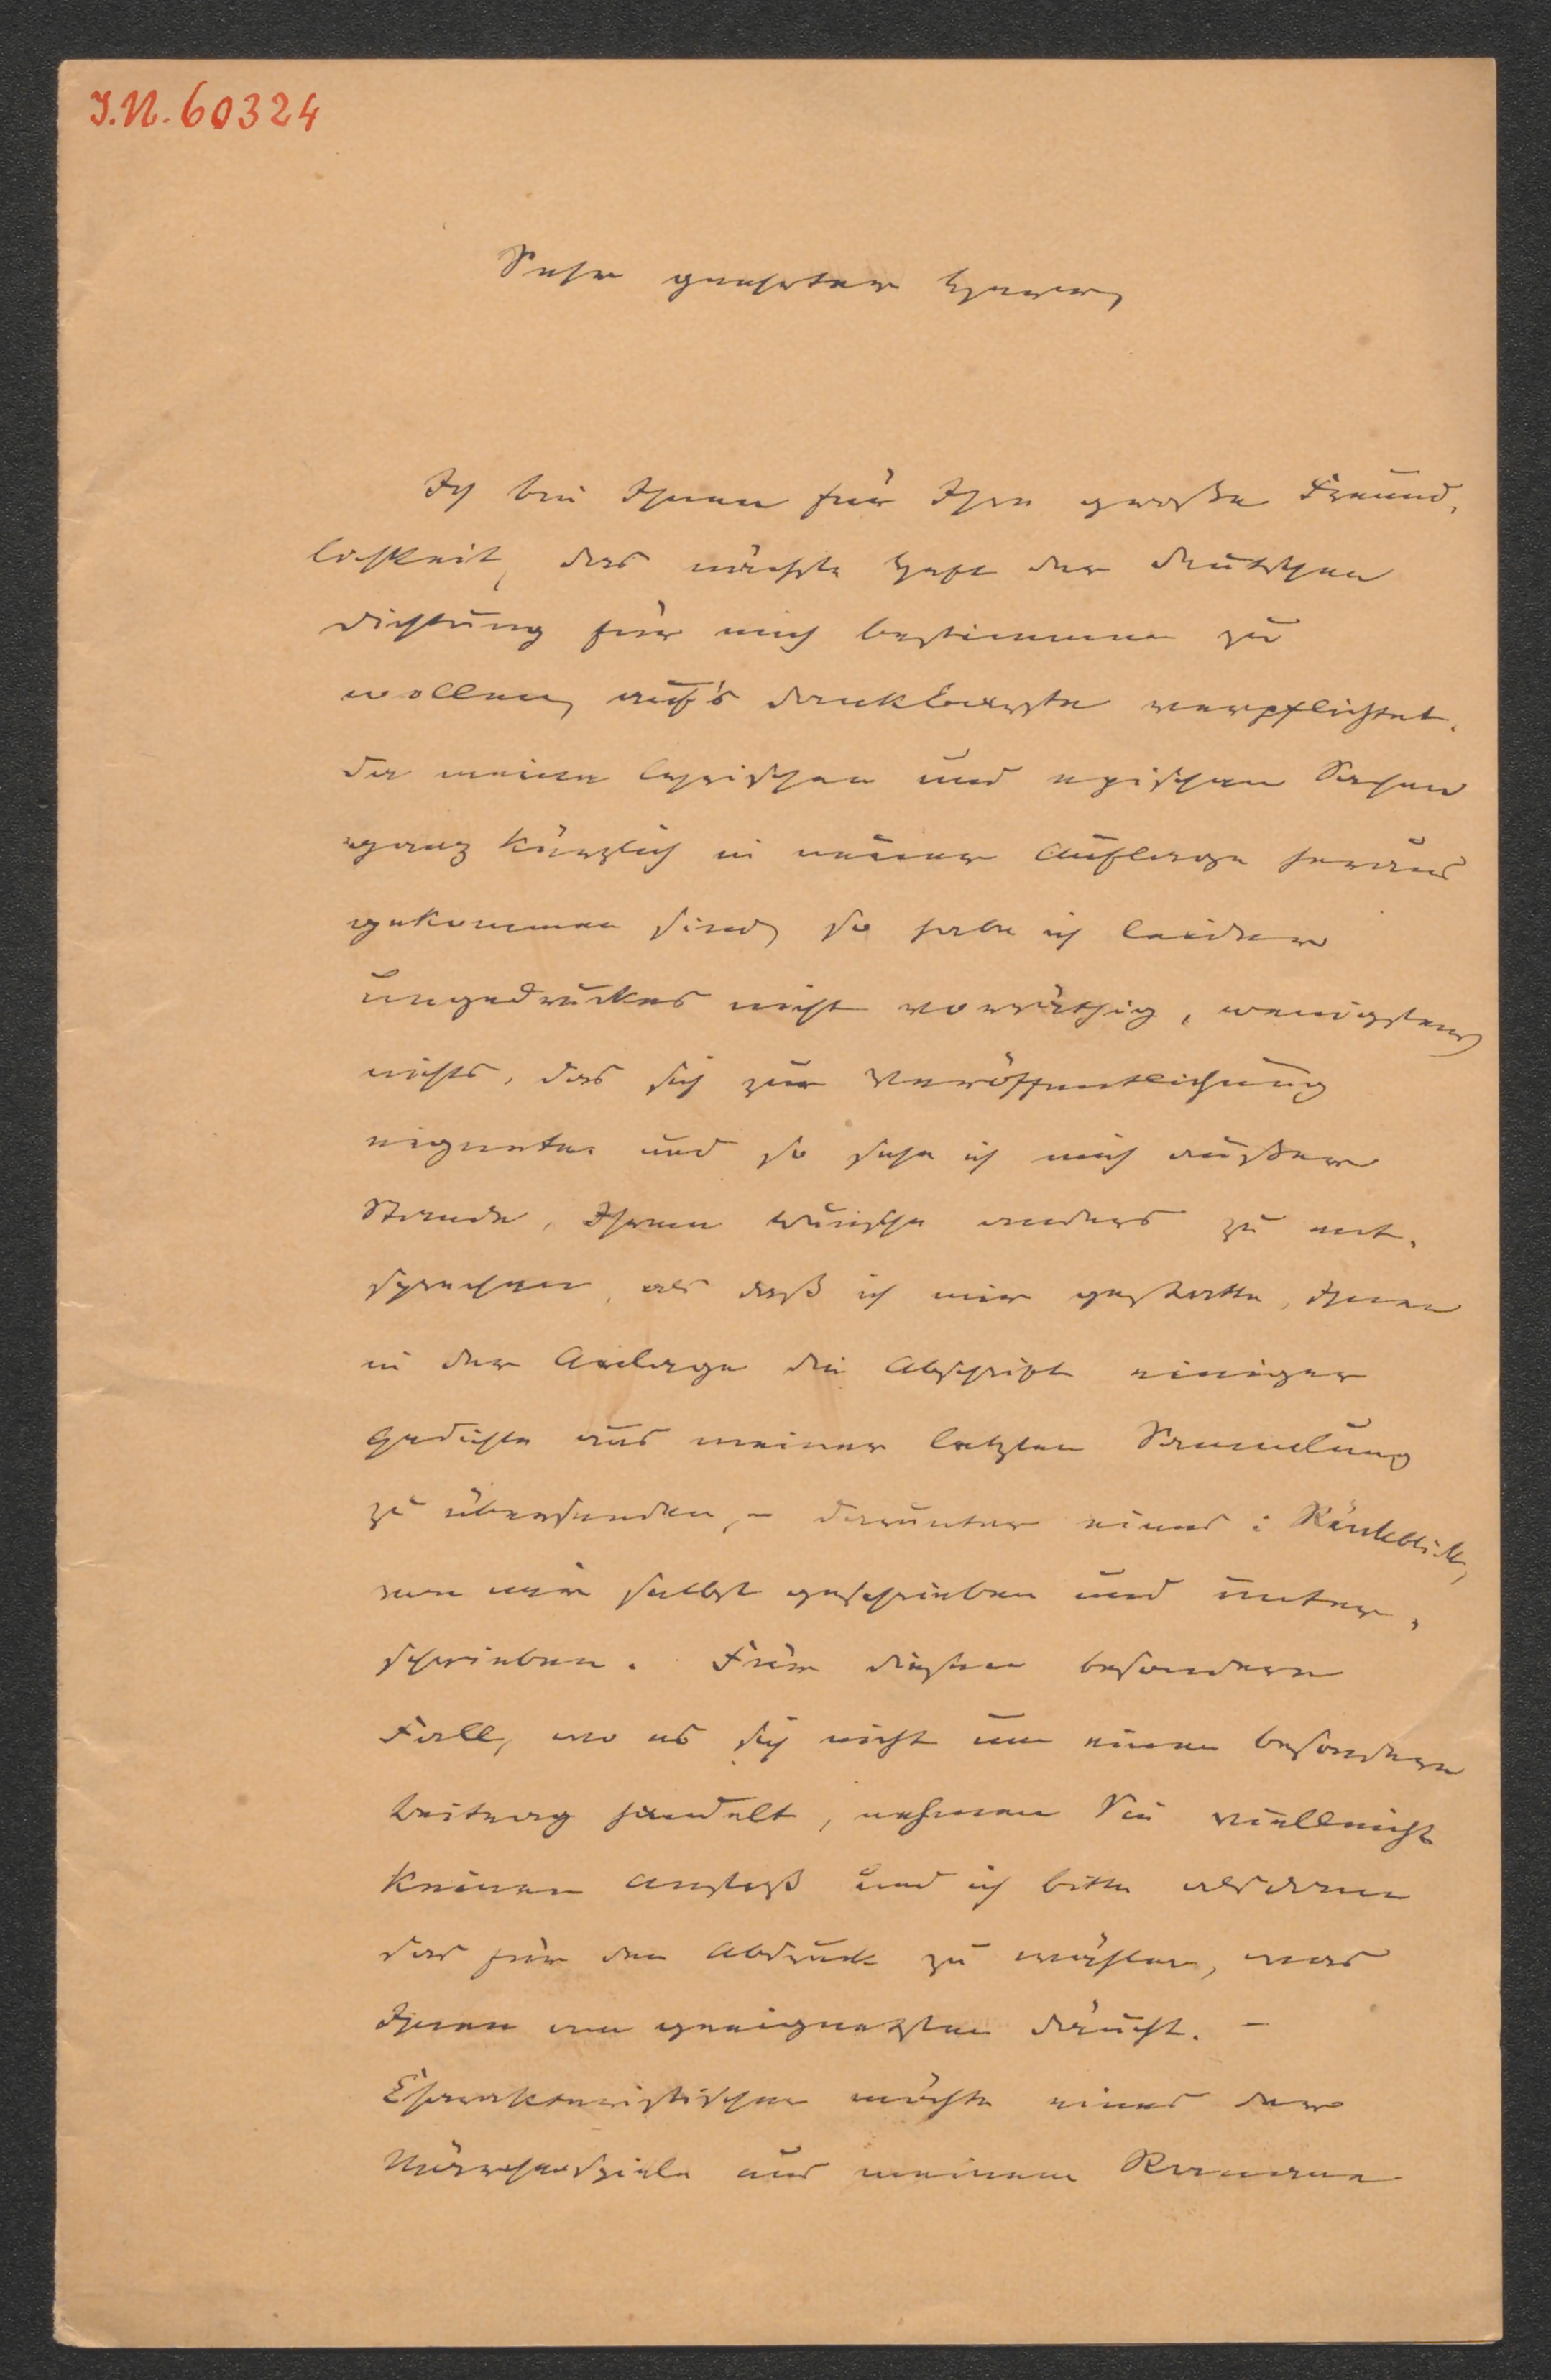 J.N. 60324
Sehr geehrter Herr,
Ich bin Ihnen für Ihre große Freund,
lichkeit, das nächste Heft der deutschen
Dichtung für mich bestimmen zu
wollen, auf's dankbarste verpflichtet.
Da meine lyrischen und epischen Sachen
ganz kürzlich in neuer Auflage heraus
gekommen sind, so habe ich leider
ungedrucktes nicht vorräthig, wenigstens
nichts, das sich zur Veröffentlichung
eignete. und so sehe ich mich außer
Stande, Ihrem Wunsche anders zu ent,
sprechen, als daß ich mir gestatte, Ihnen
in der Anlage die Abschrift einiger
Gedichte aus meiner letzten Sammlung
zu übersenden, – darunter eines: Rückblick,
von mir selbst geschrieben und unter,
schrieben. Für diesen besondern
Fall, wo es sich nicht um einen besondern
Beitrag handelt, nehmen Sie vielleicht
keinen Anstoß und ich bitte alsdann
das für den Abdruck zu wählen, was
Ihnen am geeignetsten däucht. –
Charakteristischer möchte eines der
Märchenspiele aus meinem Romane